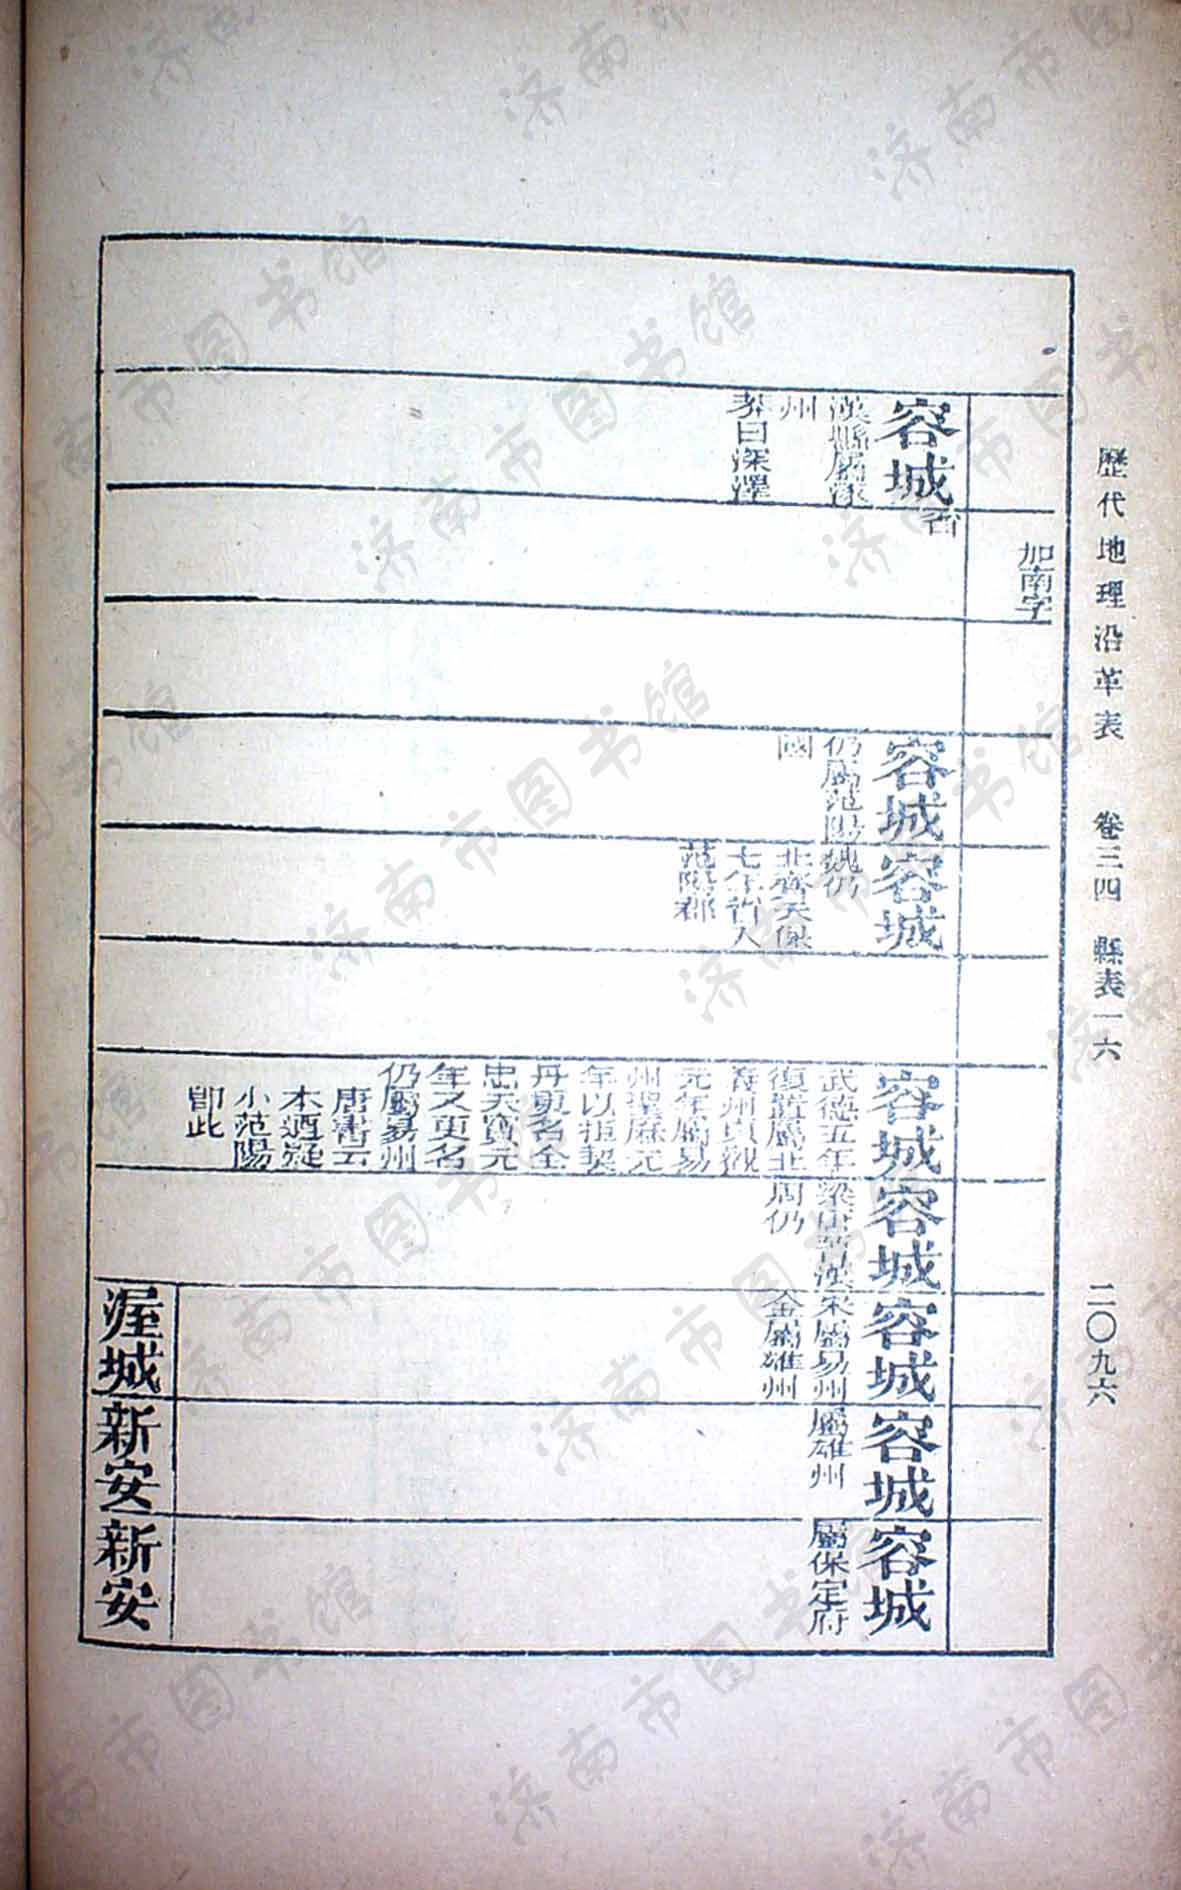 歷代地理沿革表 卷三四 縣表一六 二〇九六
加南字
容城
漢縣屬涿
州
莽曰深澤
省
容城
仍屬范陽
國
容城
魏仍
北齊天保
七年省入
范陽郡
容城
武德五年
復置屬北
義州貞觀
元年屬易
州聖曆元
年以拒契
丹更名全
忠天寶元
年又更名
仍屬易州
唐書云
本遒疑
小范陽
卽此
容城
梁唐晉漢
周仍
容城
宋屬易州
金屬雄州
容城
屬雄州
容城
屬保定府
渥城
新安
新安
济南市图书馆